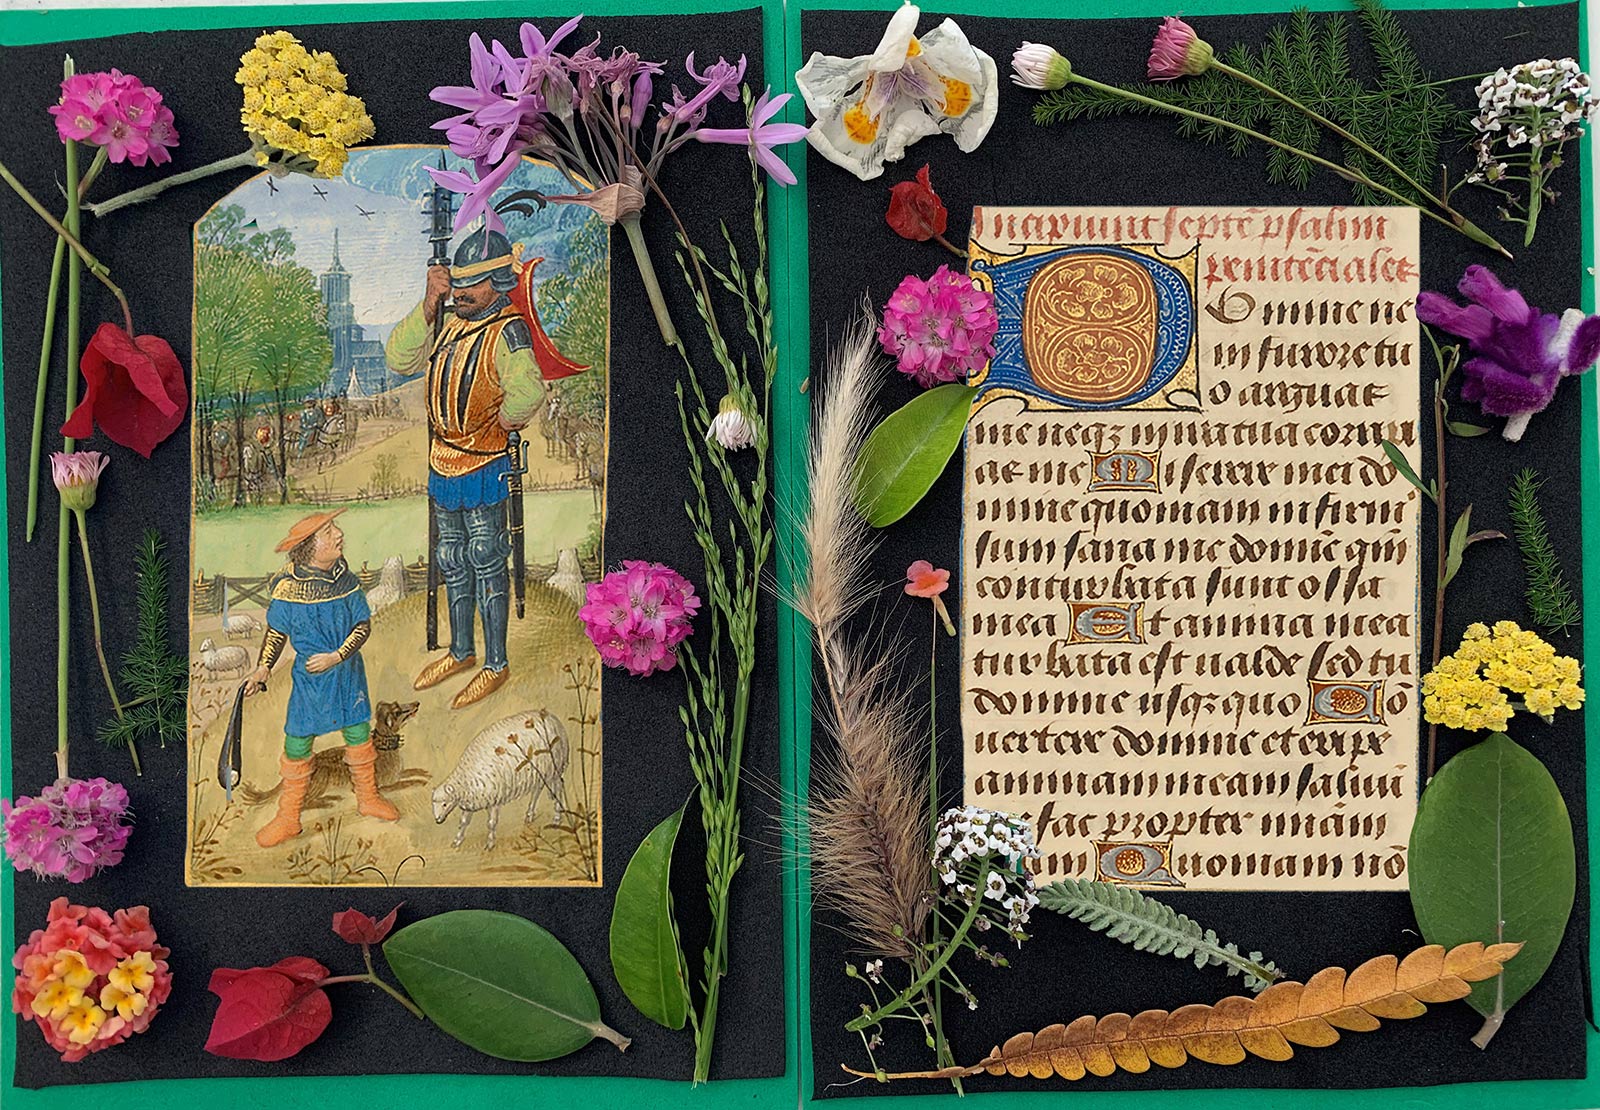 Incipiunt septē psalmi
penitēciales
Domine ne
in furore tu
o arguas
me neqȝ in ira tua
as me Miserere mei do
mine quoniam infirm
sum sana me domine qm̄
conturbata sunt ossa
mea Et anima mea
turbata est ualde sed tu
domine usqȝ quo Cō
uertere domine et eripe
animam meam saluū
fac propter miām
am Quoniam nō